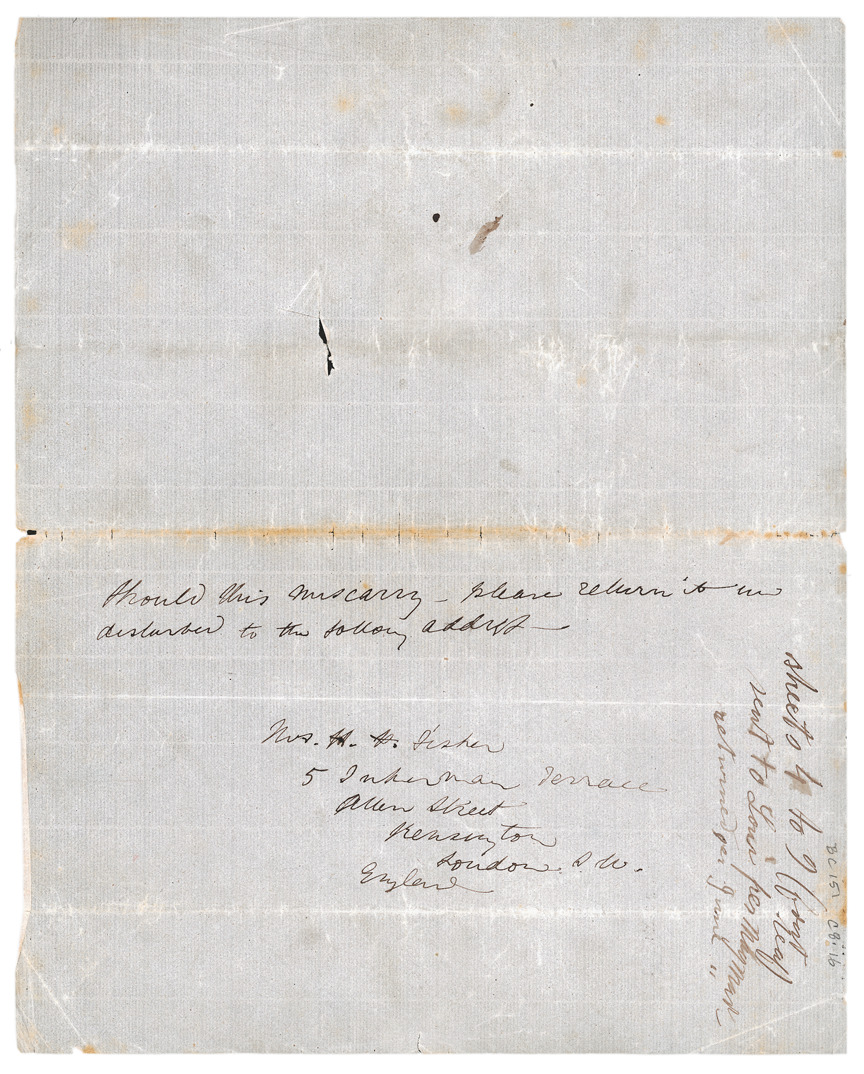 Should this miscarry – please return it un
disturbed to the following address —
Mrs. H. H. Fisher
5 Inkerman Terrace
Allen Street
Kensington
London. S. W.
England
sheets 4 to 9 (front
leaf)
sent to Loui per
returned per
BC 151 C8:16